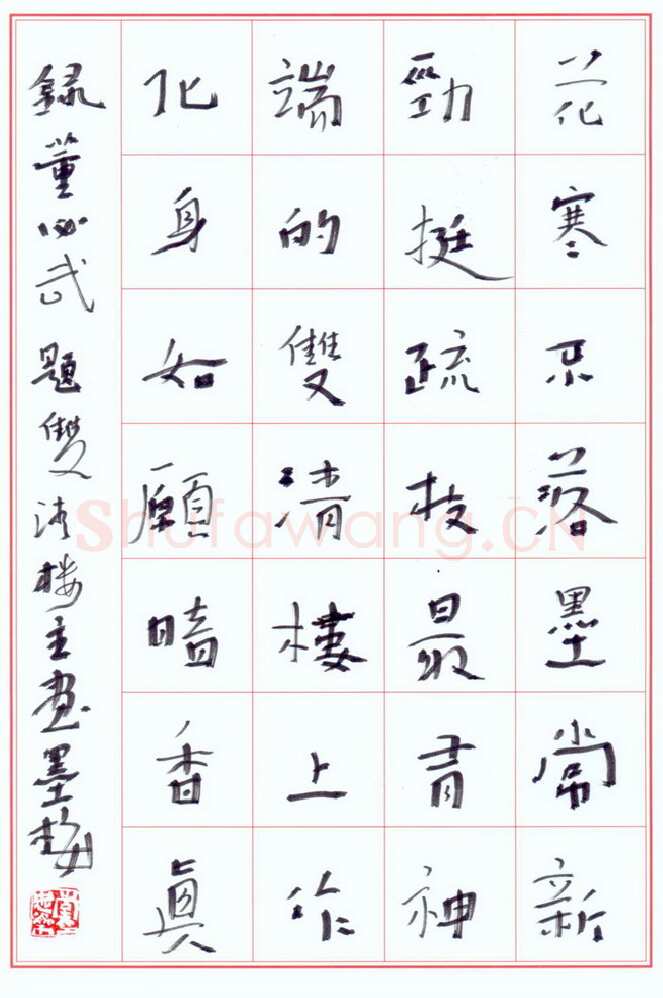 花寒不落墨常新
勁挺疏枝最有神
端的雙清樓上作
化身如願暗香真
錄董必武題雙清楼主画墨梅
Shufawang.CN